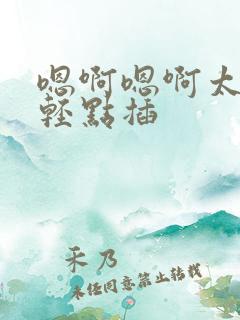 嗯啊嗯啊太
輕點插
禾乃
未经同意禁止转载